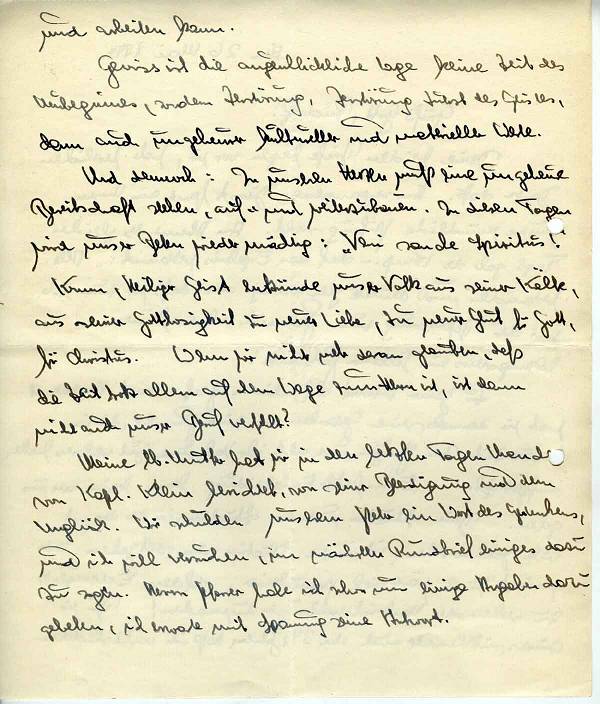 und arbeiten kann.
Gewiss ist die augenblickliche Lage keine Zeit des
Neubeginnes, sondern Zerstörung, Zerstörung selbst des Geistes,
dann auch ungeheurer kultureller und materieller Werte.
Und dennoch: In unseren Herzen muß eine ungeheure
Bereitschaft stehen, auf- und weiterzubauen. In diesen Tagen
wird unser Beten wieder mächtig: Veni sancte spiritus!
Komm, Heiliger Geist entzünde unser Volk aus seiner Kälte,
aus seiner Gottlosigkeit zu neuer Liebe, zu neuer Glut für Gott,
für Christus. Wenn wir nicht mehr daran glauben, daß
die Zeit trotz allem auf dem Wege zum Herrn ist, ist dann
nicht auch unser Beruf verfehlt?
Meine lb. Mutter hat mir in den letzten Tagen
von Kapl. Klein berichtet, von seiner Beerdigung und dem
Unglück. Wir schulden unserem Peter ein Wort des Gedenkens,
und ich will versuchen, im nächsten Rundbrief einiges dazu
zu sagen. Herrn Pfarrer habe ich schon um einige Angaben dazu
gebeten, ich erwarte mit Spannung seine Antwort.